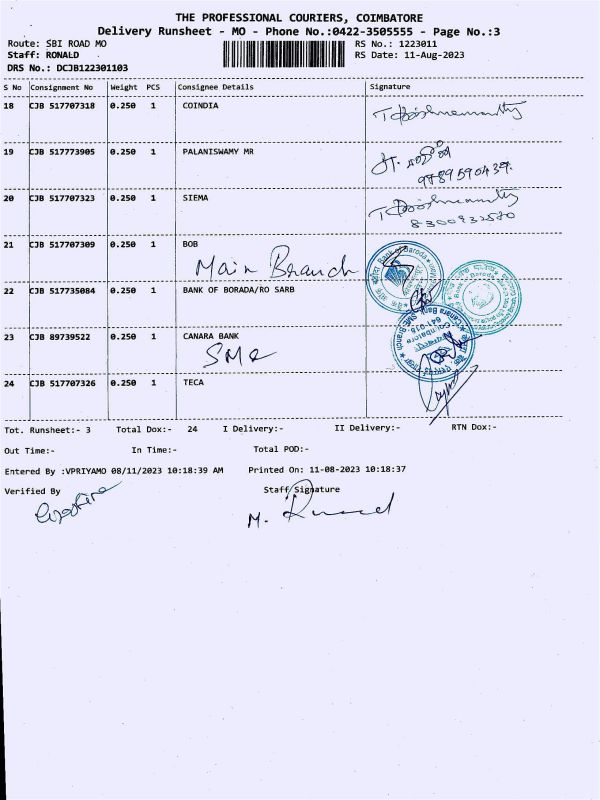 THE PROFESSIONAL COURIERS, COIMBATORE
Delivery Runsheet - MO - Phone No.:0422-3505555 - Page No.:3
Route: SBI ROAD MO
RS No.: 1223011
Staff: RONALD
RS Date: 11-Aug-2023
DRS No.: DCJB122301103
S No Consignment No Weight PCS Consignee Details Signature
18 CJB 517707318 0.250 1 COINDIA
19 CJB 517773905 0.250 1 PALANISWAMY MR
9789590439.
20 CJB 517707323 0.250 1 SIEMA
8300932580
21 CJB 517707309 0.250 1 BOB
Main Branch
22 CJB 517735084 0.250 1 BANK OF BORADA/RO SARB
23 CJB 89739522 0.250 1 CANARA BANK
SME
24 CJB 517707326 0.250 1 TECA
Tot. Runsheet:- 3 Total Dox:- 24 I Delivery:- II Delivery:- RTN Dox:-
Out Time:- In Time:- Total POD:-
Entered By :VPRIYAMO 08/11/2023 10:18:39 AM Printed On: 11-08-2023 10:18:37
Verified By Staff Signature